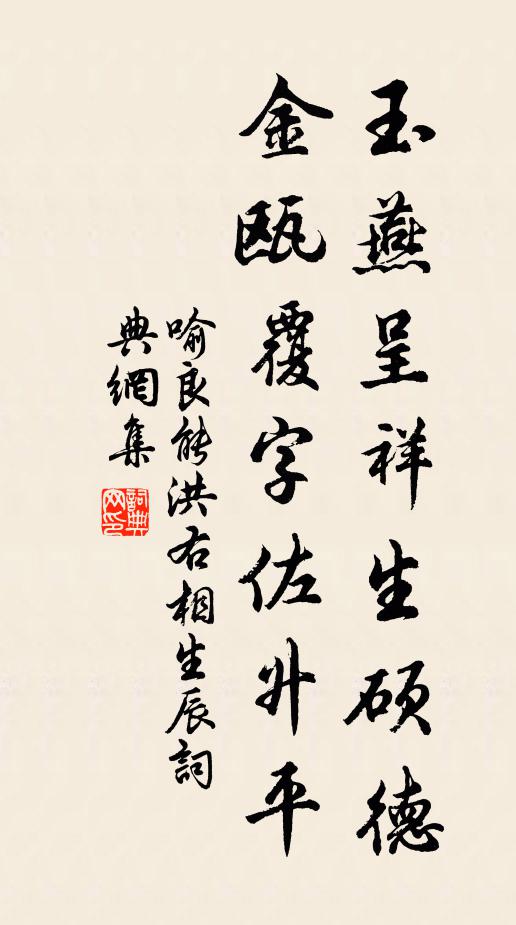 玉燕呈祥生硕德
金瓯覆字佐升平
喻良能洪右相生辰詞
典網集
詞典网印